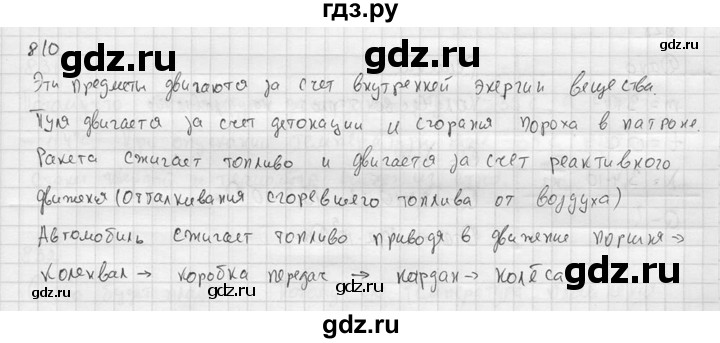 гдз.ру
810
gdz.ru gdz.ru
Эти предмети двигаются за счет внутренней энергии вещества
Пуля двигается за счет детонации и сгорания пороха в патроне.
Ракета сжигает топливо и двигается за счет реактивного
движения (отталкивания сгоревшего топлива от воздуха)
gdz.ru gdz.ru
Автомобиль сжигает топливо приводя в движение поршня →
коленвал → коробка передач → кардан → колёса
gdz.ru gdz.ru
gdz.ru